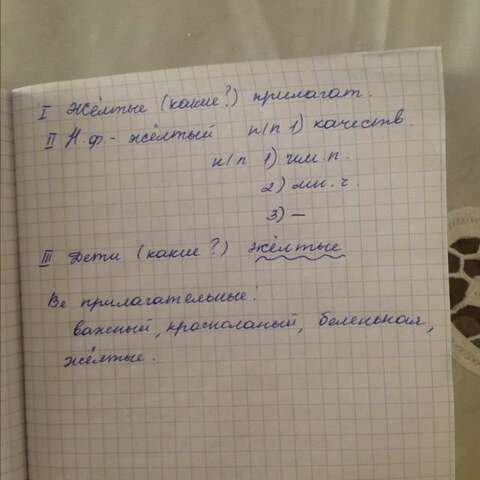 I Жёлтые (какие?) прилагат.
II Н.ф - жёлтый п/п 1) качеств.
н/п 1) им.п.
2) мн.ч.
3) —
III Дети (какие?) жёлтые
Ве прилагательные:
важный, красноланый, беленькая,
жёлтые.